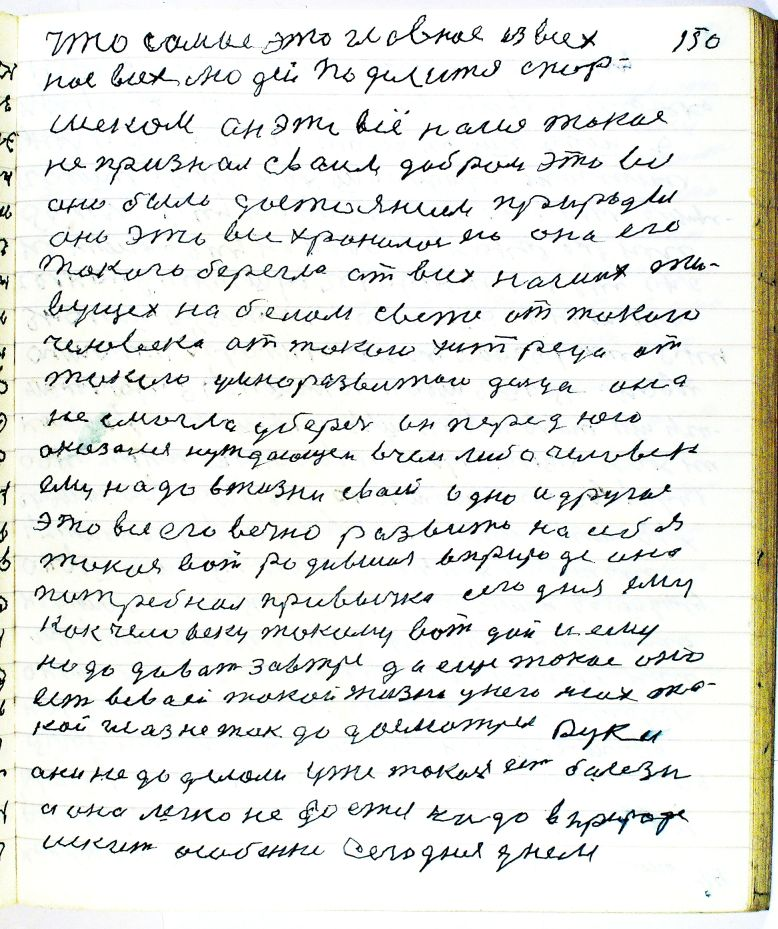 что самые это главное из всех 150
нас всех людей поделится спор-
шеком он эти всё наше такое
не признал сваим добром это вси
оно было достоянием природы
оно эта все хранилося она его
такого берегла от всех нагших жи-
вущех на белом свете от такого
человека от такого хитреца от
такого умноразвитого дельца она
не смогла уберечь он перед него
оказался нуждающей в чем либо человек
ему надо в жизни своей одно и другое
это все его вечно развить на себя
такая вот родившая в природе она
потребная привычка сегодня ему
как человеку такому вот дай и ему
надо дават завтре да еще такое оно
ест в всей такой жизне у него та-
кой глаз не так до досмотрел Руки
они не до делали уже такой ест балезн
а она легко не дается надо в природе
искат особенни сегодня днем